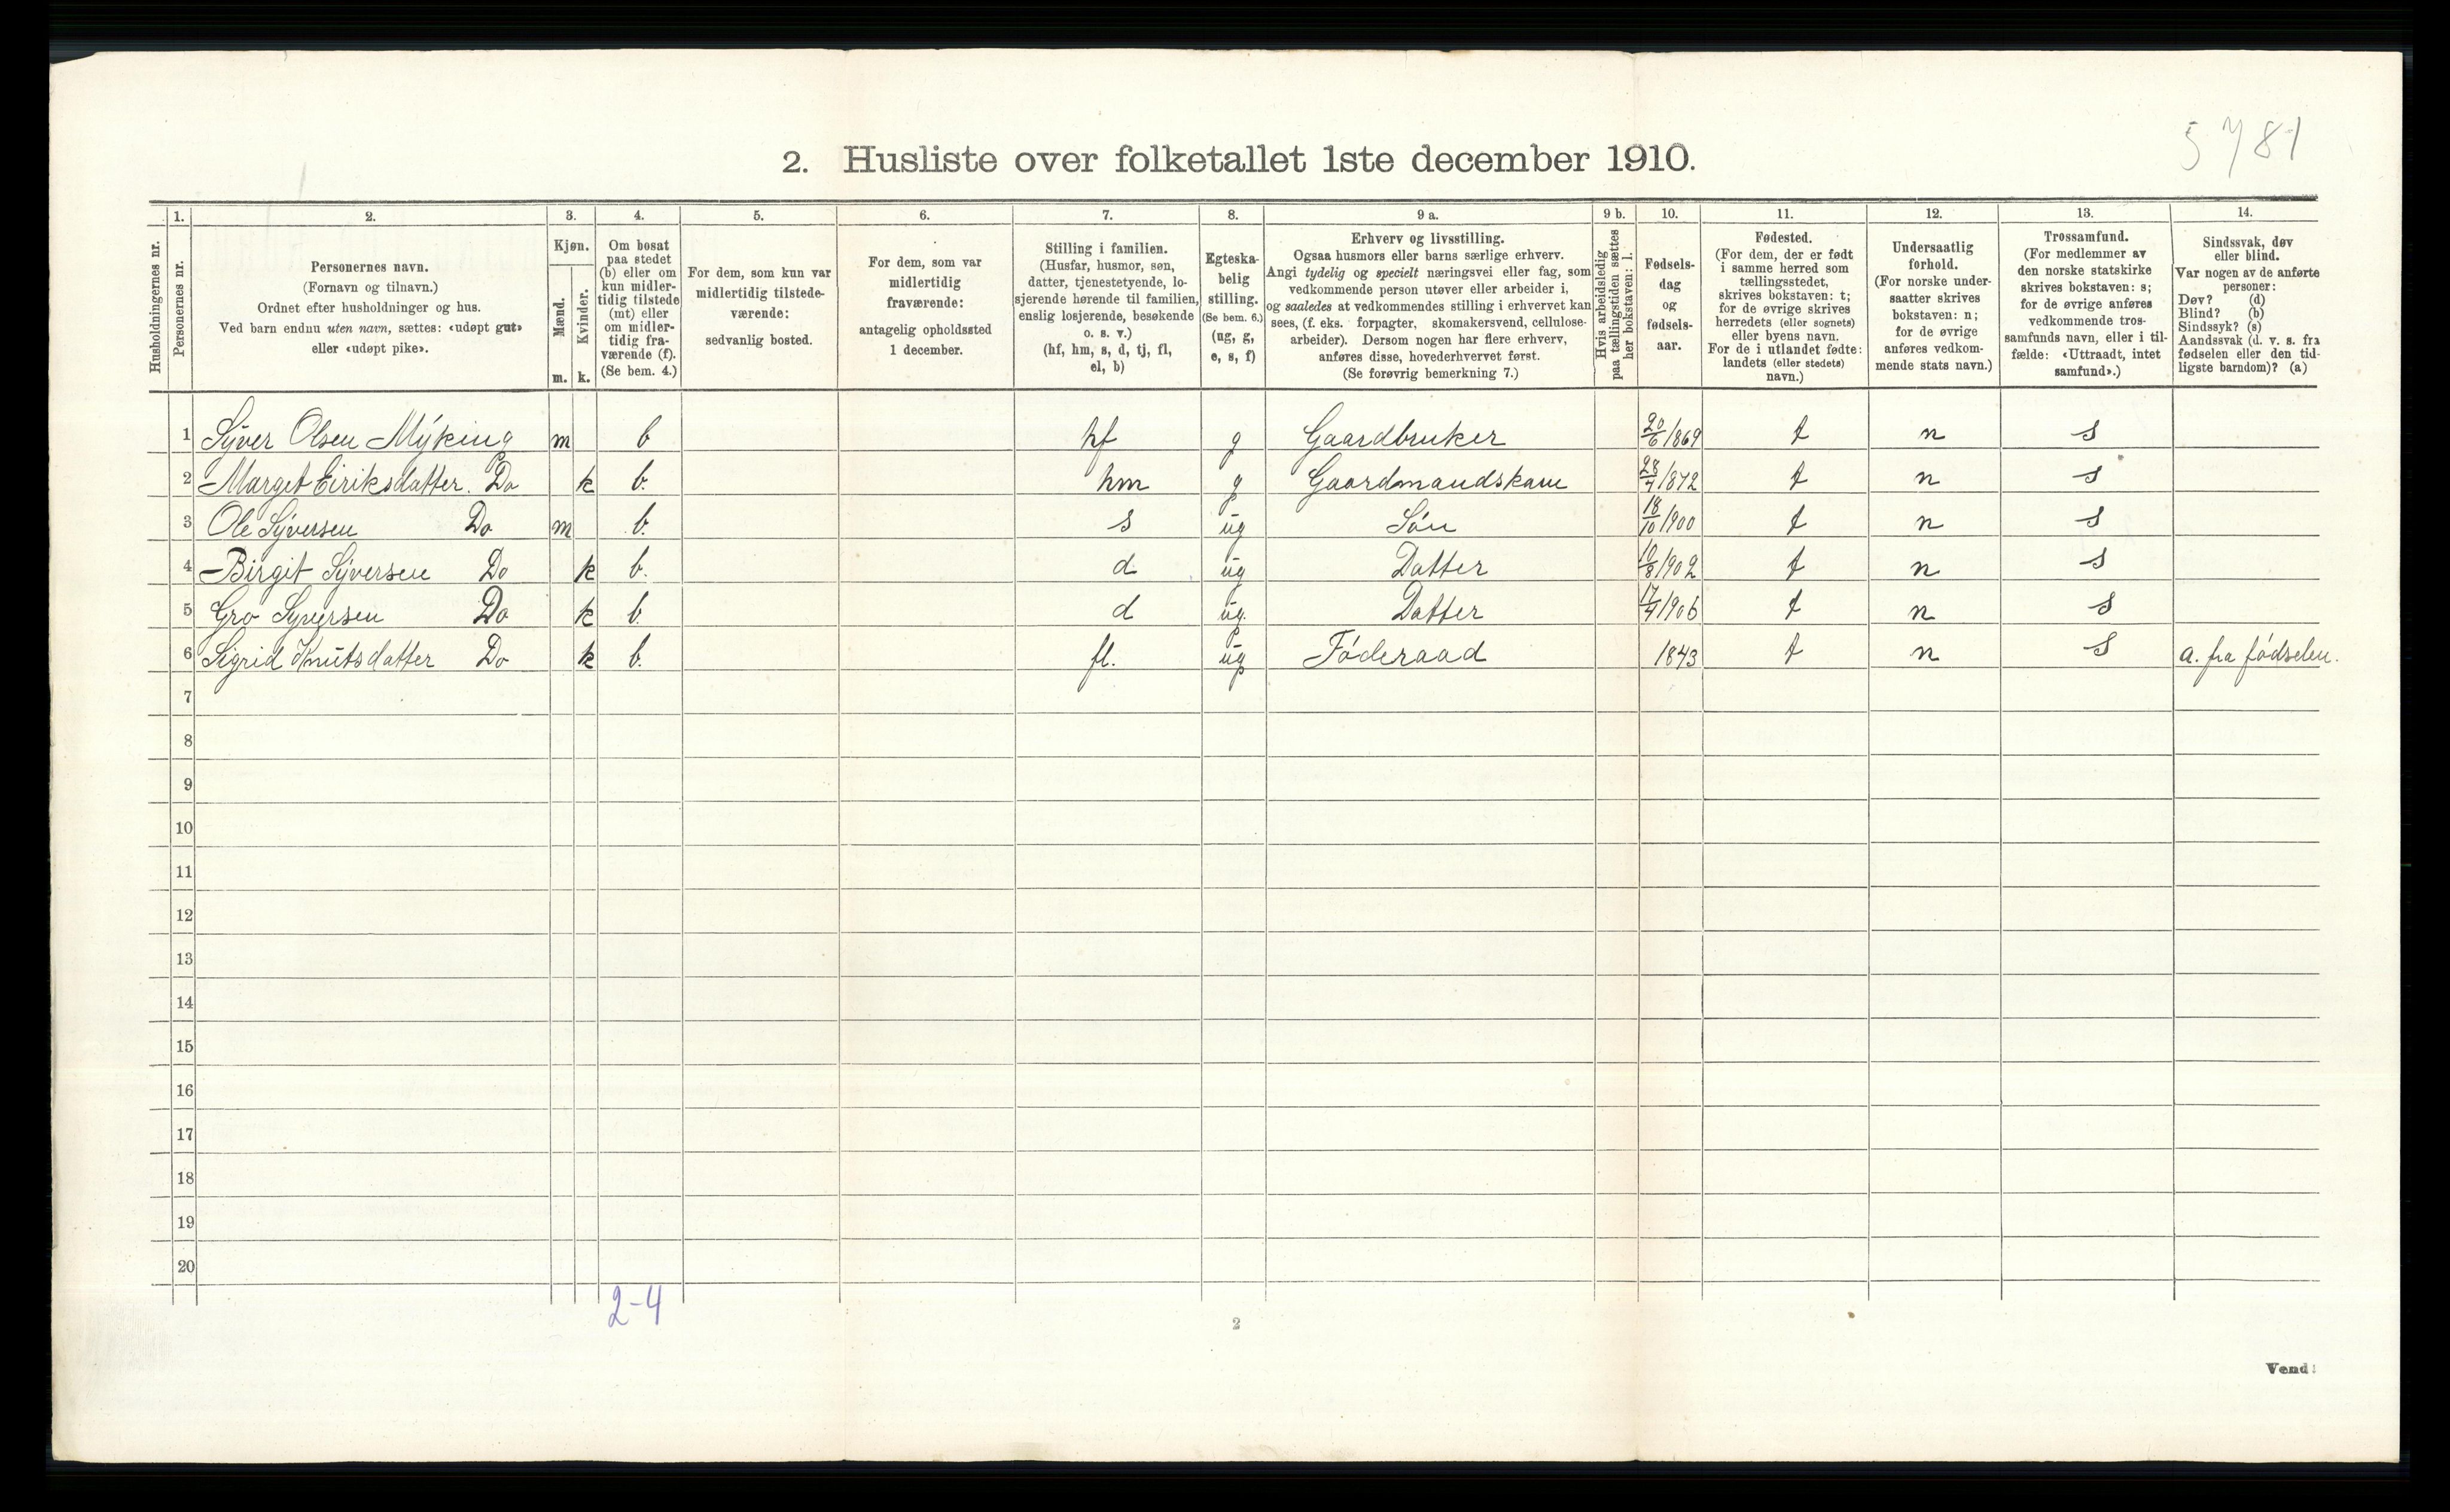 5781
2. Husliste over folketallet 1ste december 1910.
1. 2. 3. 4. 5. 6. 7. 8. 9 a. 9 b. 10. 11. 12. 13. 14.
Husholdningernes nr.
Personernes nr.
Personernes navn.
(Fornavn og tilnavn.)
Ordnet efter husholdninger og hus.
Ved barn endnu uten navn, sættes: «udøpt gut»
eller «udøpt pike».
Kjøn.
Mænd.
Kvinder.
m. k.
Om bosat
paa stedet
(b) eller om
kun midler-
tidig tilstede
(mt) eller
om midler-
tidig fra-
værende (f).
(Se bem. 4.)
For dem, som kun var
midlertidig tilstede-
værende:
sedvanlig bosted.
For dem, som var
midlertidig
fraværende:
antagelig opholdssted
1 december.
Stilling i familien.
(Husfar, husmor, søn,
datter, tjenestetyende, lo-
sjerende hørende til familien,
enslig losjerende, besøkende
o. s. v.)
(hf, hm, s, d, tj, fl,
el, b)
Egteska-
belig
stilling.
(Se bem. 6.)
(ug, g,
e, s, f)
Erhverv og livsstilling.
Ogsaa husmors eller barns særlige erhverv.
Angi tydelig og specielt næringsvei eller fag, som
vedkommende person utøver eller arbeider i,
og saaledes at vedkommendes stilling i erhvervet kan
sees, (f. eks. forpagter, skomakersvend, cellulose-
arbeider). Dersom nogen har flere erhverv,
anføres disse, hovederhvervet først.
(Se forøvrig bemerkning 7.)
Hvis arbeidsledig
paa tællingstiden sættes
her bokstaven: l.
Fødsels-
dag
og
fødsels-
aar.
Fødested.
(For dem, der er født
i samme herred som
tællingsstedet,
skrives bokstaven: t;
for de øvrige skrives
herredets (eller sognets)
eller byens navn.
For de i utlandet fødte:
landets (eller stedets)
navn.)
Undersaatlig
forhold.
(For norske under-
saatter skrives
bokstaven: n;
for de øvrige
anføres vedkom-
mende stats navn.)
Trossamfund.
(For medlemmer av
den norske statskirke
skrives bokstaven: s;
for de øvrige anføres
vedkommende tros-
samfunds navn, eller i til-
fælde: «Uttraadt, intet
samfund».)
Sindssvak, døv
eller blind.
Var nogen av de anførte
personer:
Døv? (d)
Blind? (b)
Sindssyk? (s)
Aandssvak (d. v. s. fra
fødselen eller den tid-
ligste barndom)? (a)
1 Syver Olsen Myking m b hf g Gaardbruker 20/6 1869 t n s
2 Marget Eiriksdatter. Do k b. hm g Gaardmandskone 28/7 1872 t n s
3 Ole Syversen Do m b. s ug Søn 18/10 1900 t n s
4 Birgit Syversen Do k b. d ug Datter 10/8 1902 t n s
5 Gro Syversen Do k b. d ug. Datter 17/4 1906 t n s
6 Sigrid Knutsdatter Do k b. fl. ug Føderaad 1843 t n s a. fra fødselen.
7
8
9
10
11
12
13
14
15
16
17
18
19
20
2-4
2
Vend!